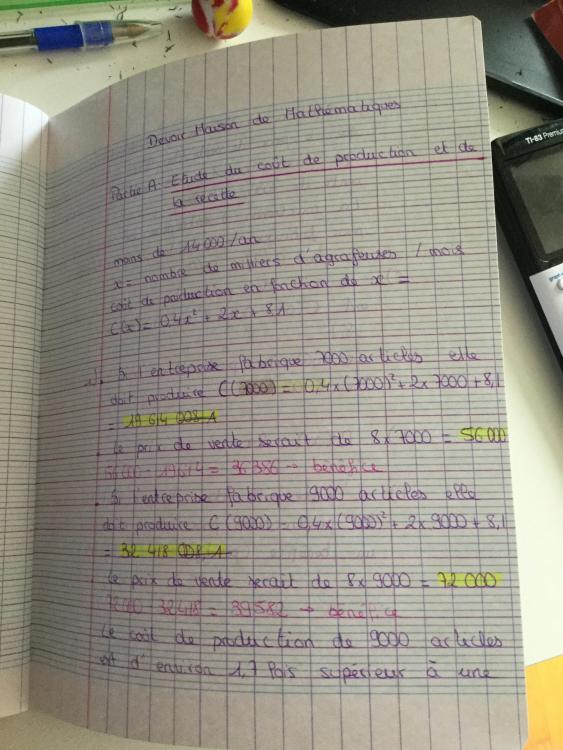 Devoir Maison de Mathématiques
Partie A: Etude du coût de production et de
la recette
moins de 14 000/an
x = nombre de milliers d'agrafeuses / mois
coût de production en fonction de x =
C(x) = 0,4x² + 2x + 8,1
1. Si l'entreprise fabrique 7000 articles elle
doit produire C(7000) = 0,4 x (7000)² + 2 x 7000 + 8,1
= 19 614 008,1
Le prix de vente serait de 8 x 7000 = 56 000
- 19614 = 36 386 → bénéfice
. Si l'entreprise fabrique 9000 articles elle
doit produire C (9000) = 0,4 x (9000)² + 2 x 9000 + 8,1
= 32 418 008,1
Le prix de vente serait de 8 x 9000 = 72 000
- 32418 = 39 582 → bénéfice
Le coût de production de 9000 articles
est d'environ 1,7 fois supérieur à une
TI-83 Premium